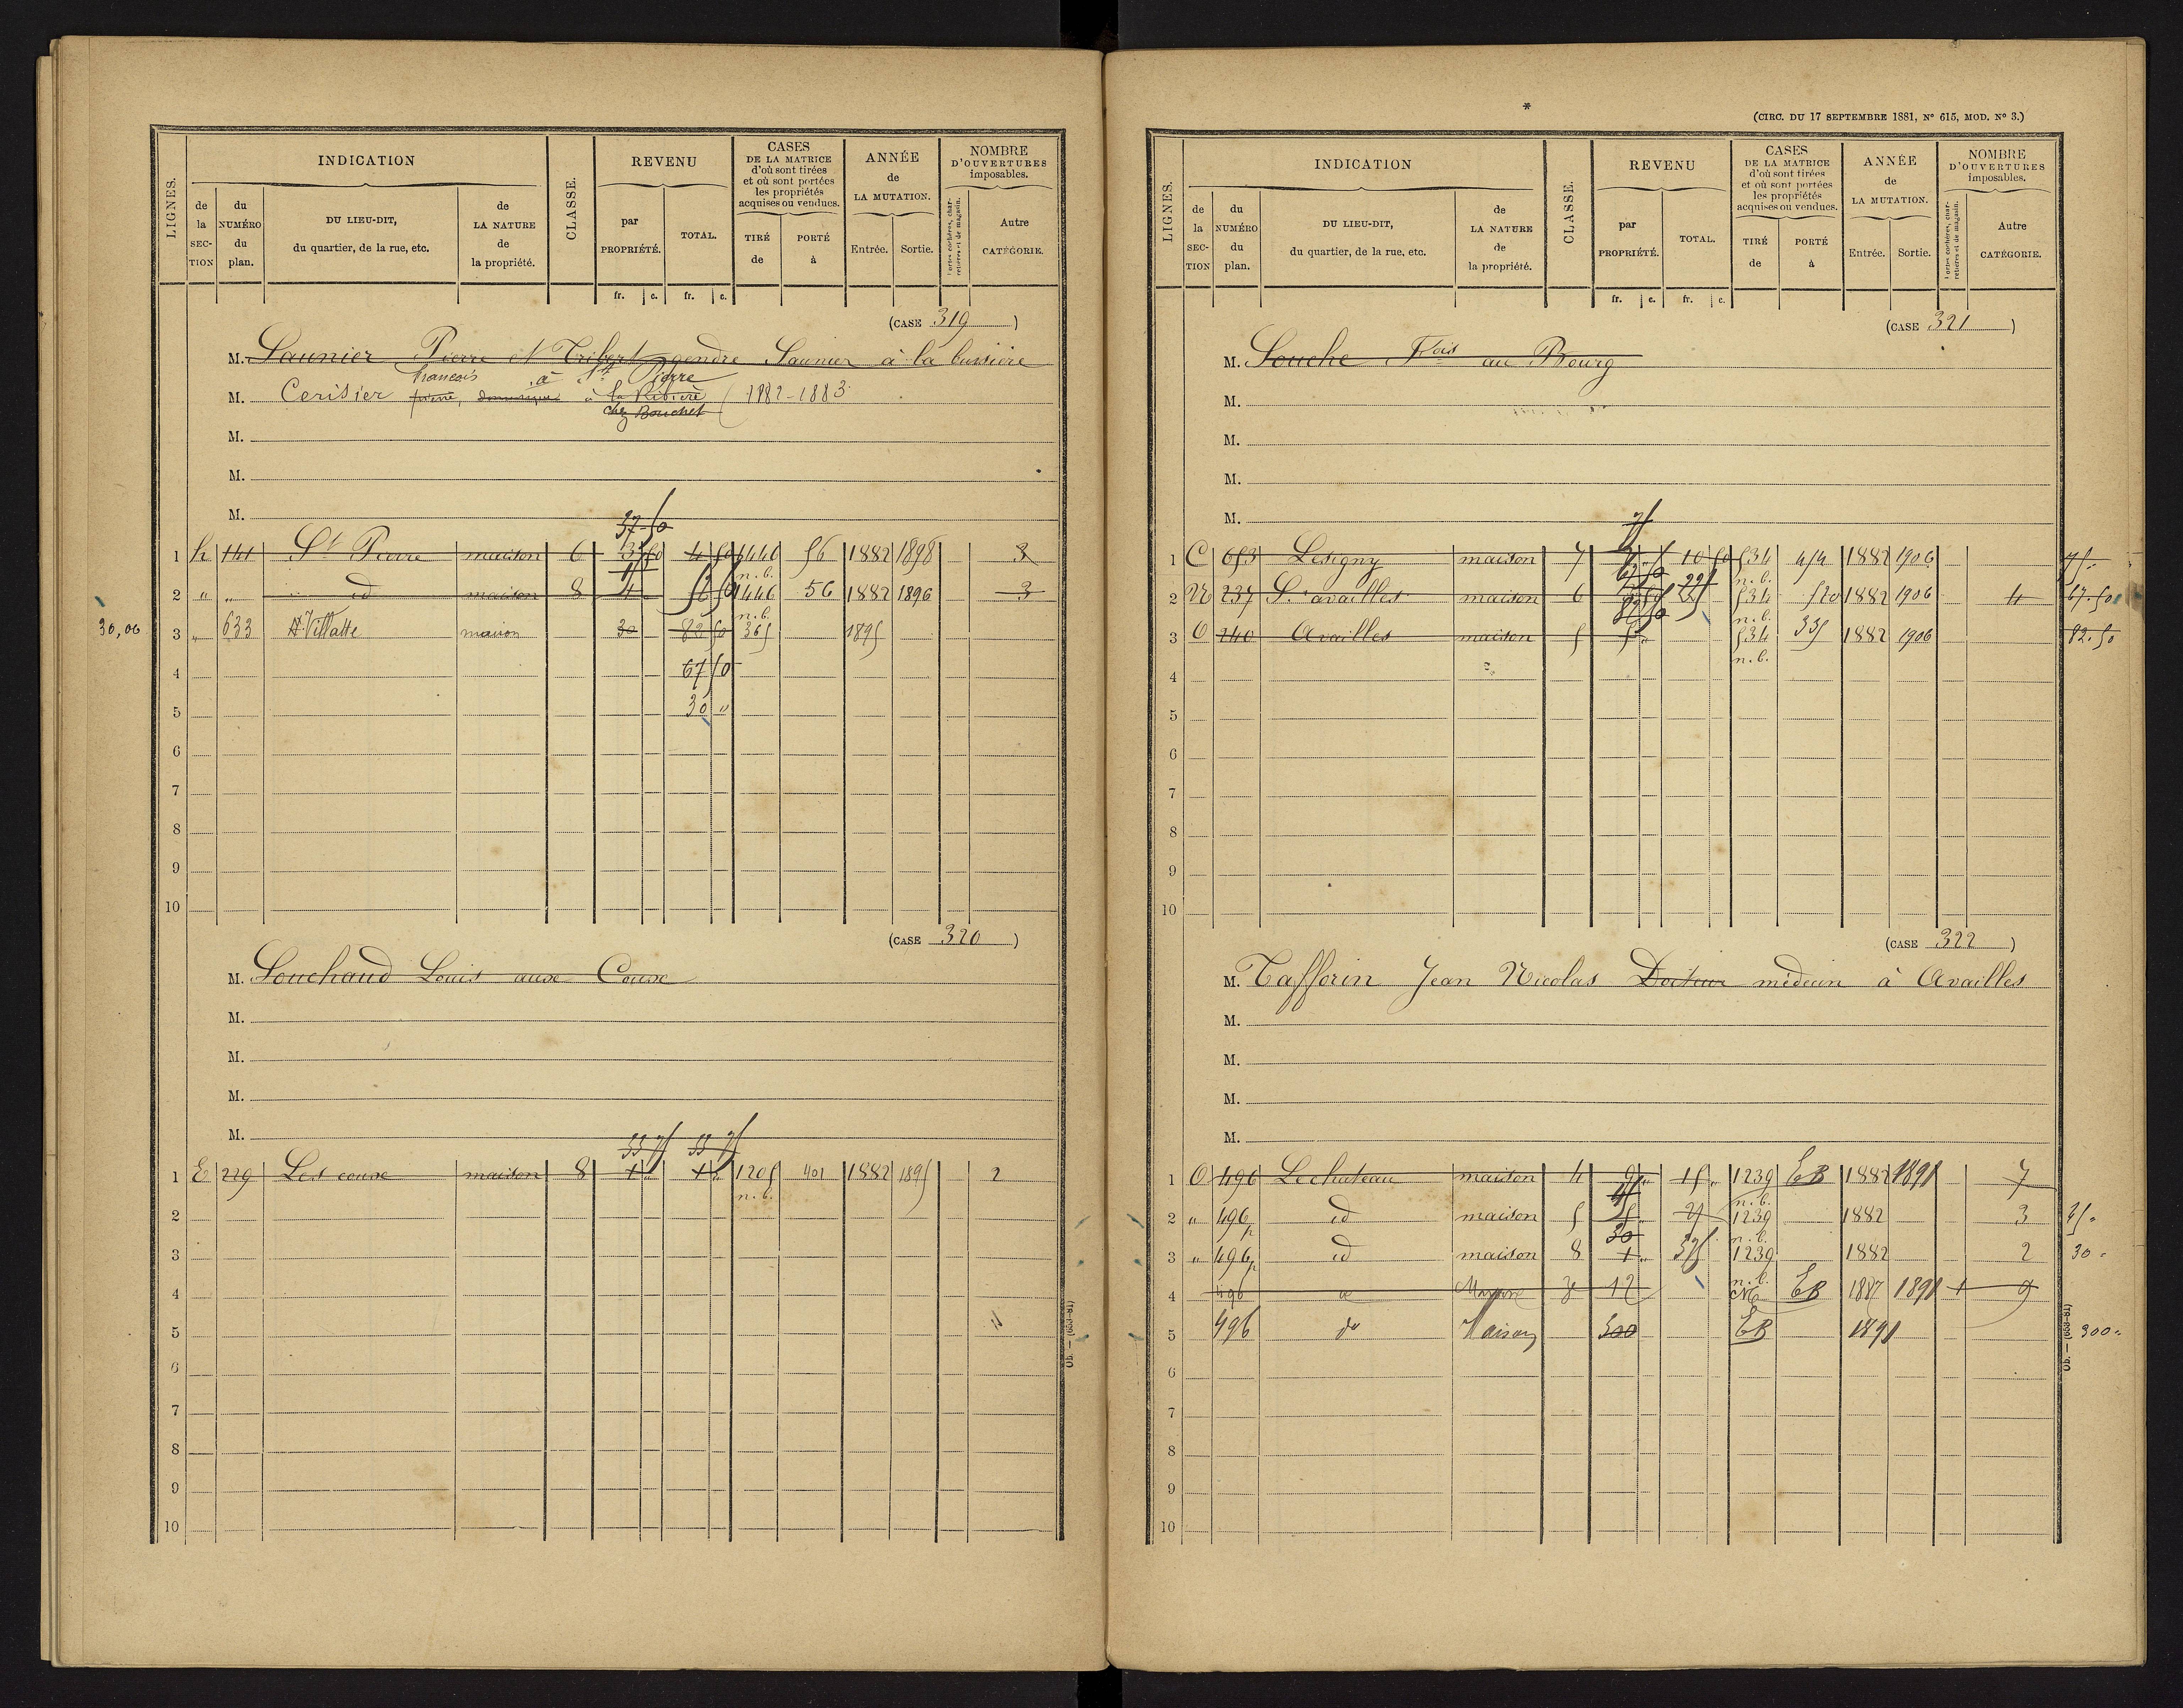 LIGNES.
INDICATION
de la SEC- TION
du NUMÉRO du plan.
DU LIEU-DIT, du quartier, de la rue, etc.
de LA NATURE de la propriété.
CLASSE.
REVENU
par PROPRIÉTÉ.
TOTAL.
CASES DE LA MATRICE d'où sont tirées et où sont portées les propriétés acquises ou vendues.
TIRÉ de
PORTÉ à
ANNÉE de LA MUTATION.
Entrée.
Sortie.
NOMBRE D'OUVERTURES imposables.
Portes cochères, charretières et de magasin.
Autre CATÉGORIE.
fr. c. fr. c.
(CASE 319)
M. Saunier Pierre et Tribert gendre Saunier à la bussière
françois à St Pierre
M. Cerisier pierre, à la Rivière 1882-1883
chez Bouchet
M.
M.
M.
37 50
1 h 141 St Pierre maison 6 4 50 1446 56 1882 1898 3
n.b.
2 " " id maison 8 4 1446 56 1882 1896 3
n.b.
30,00 3 " 633 Villatte maison 30 82 50 365 1895
4 67 50
5 30 "
6
7
8
9
10
(CASE 320)
M. Souchaud Louis aux Coux
M.
M.
M.
M.
33 75 33 75
1 E 229 Les coux maison 8 1 " 1 " 1205 401 1882 1895 2
n.b.
2
3
4
5
6
7
8
9
10
Ob. — (653-81)
*
(CIRC. DU 17 SEPTEMBRE 1881, N° 615, MOD. N° 3.)
LIGNES.
INDICATION
de la SEC- TION
du NUMÉRO du plan.
DU LIEU-DIT, du quartier, de la rue, etc.
de LA NATURE de la propriété.
CLASSE.
REVENU
par PROPRIÉTÉ.
TOTAL.
CASES DE LA MATRICE d'où sont tirées et où sont portées les propriétés acquises ou vendues.
TIRÉ de
PORTÉ à
ANNÉE de LA MUTATION.
Entrée.
Sortie.
NOMBRE D'OUVERTURES imposables.
Portes cochères, charretières et de magasin.
Autre CATÉGORIE.
fr. c. fr. c.
(CASE 321)
M. Souche Fois au Bourg
M.
M.
M.
M.
75
1 C 653 Lesigny maison 7 10 50 534 454 1882 1906 75 "
67 50 n.b.
2 N 237 S. availles maison 6 225 534 520 1882 1906 4 67.50
82 50 n.b.
3 O 240 Availles maison 5 534 335 1882 1906 82.50
n.b.
4
5
6
7
8
9
10
(CASE 322)
M. Tafforin Jean Nicolas Docteur médecin à Availles
M.
M.
M.
M.
1 O 496 Le chateau maison 4 9 " 15 " 1239 EB 1882 1891 7
45 n.b.
2 " 496p id maison 5 1239 1882 3 45 "
30 n.b.
3 " 496p id maison 8 1 " 375 1239 1882 2 30 "
n.b.
4 496 Maison 3 12 EB 1887 1891 1 9
5 496 do Maison 300 EB 1891 300 "
6
7
8
9
10
Ob. — (653-81)